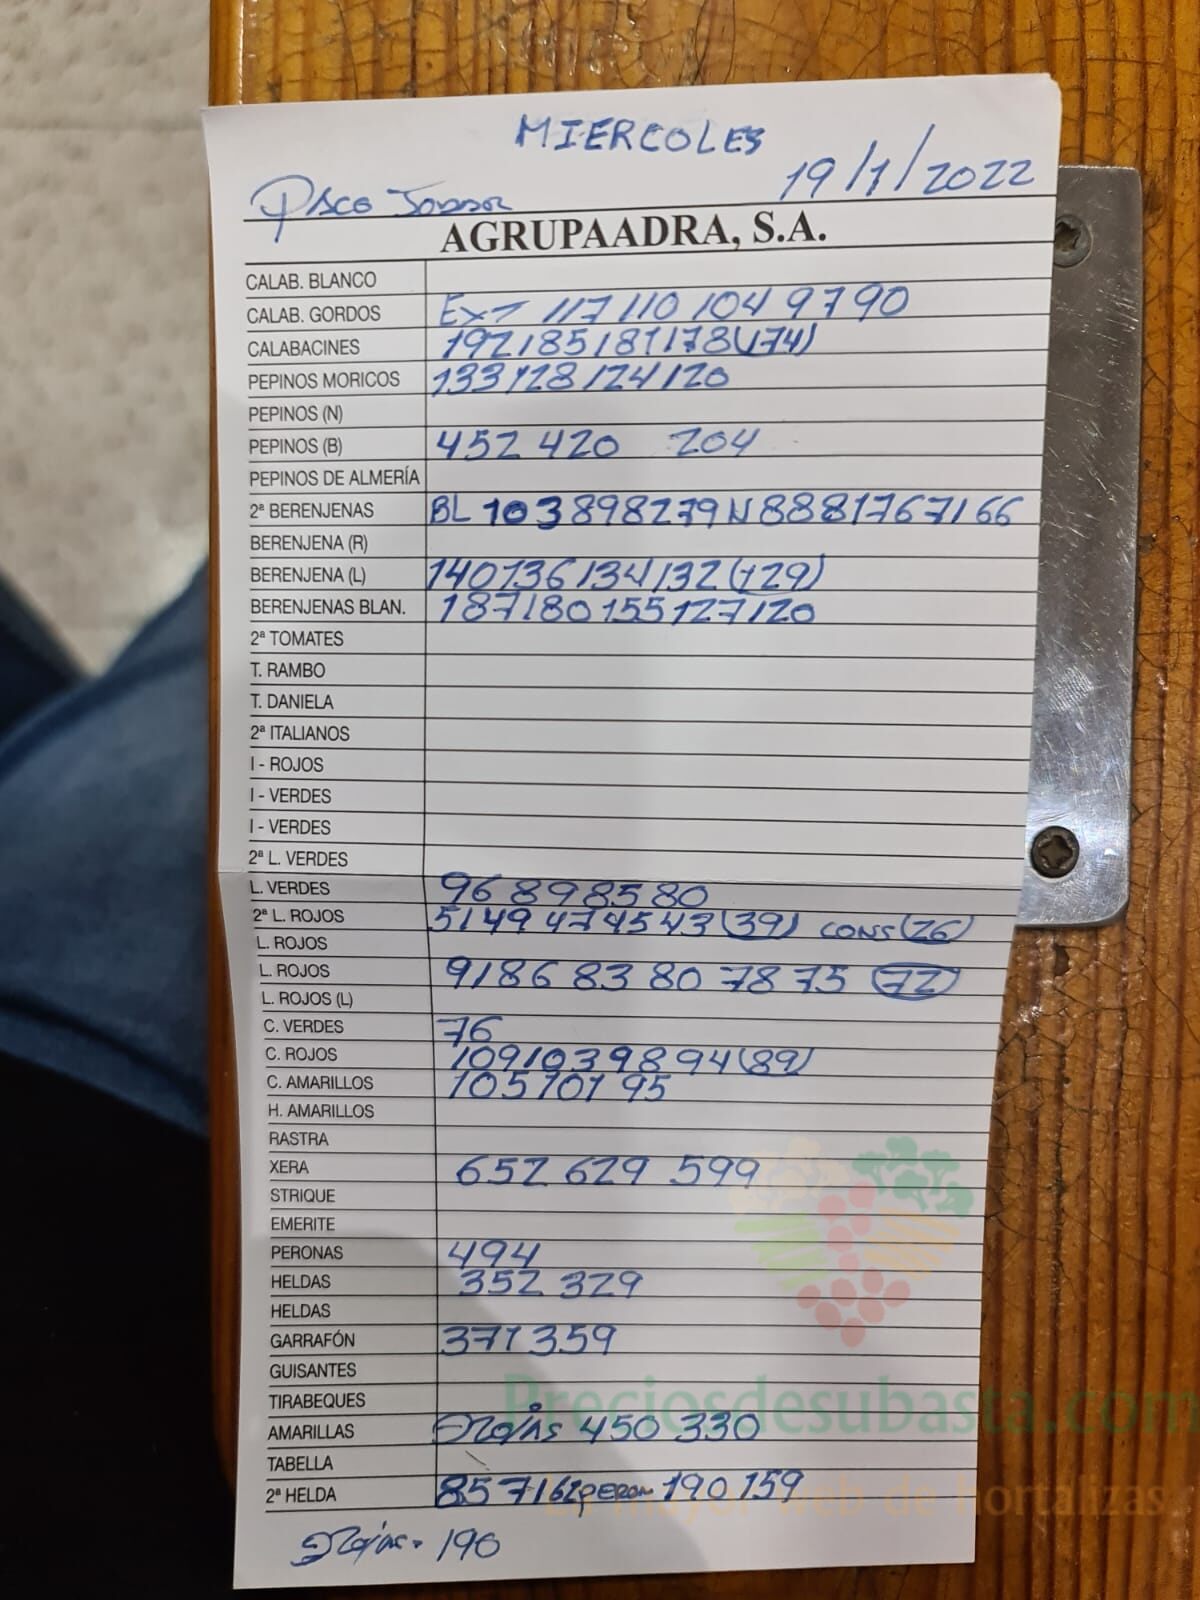 MIERCOLES
19/1/2022
PACO
AGRUPAADRA, S.A.
CALAB. BLANCO
CALAB. GORDOS EXT 117 110 104 97 90
CALABACINES 192 185 181 178 (174)
PEPINOS MORICOS 133 128 124 120
PEPINOS (N)
PEPINOS (B) 452 420 204
PEPINOS DE ALMERÍA
2ª BERENJENAS BL 103 89 82 79 N 88 81 76 71 66
BERENJENA (R)
BERENJENA (L) 140 136 134 132 (129)
BERENJENAS BLAN. 187 180 155 127 120
2ª TOMATES
T. RAMBO
T. DANIELA
2ª ITALIANOS
I - ROJOS
I - VERDES
I - VERDES
2ª L. VERDES
L. VERDES 96 89 85 80
2ª L. ROJOS 51 49 47 45 43 (39) CONS (26)
L. ROJOS
L. ROJOS 91 86 83 80 78 75 (72)
L. ROJOS (L)
C. VERDES 76
C. ROJOS 109 103 98 94 (89)
C. AMARILLOS 105 101 95
H. AMARILLOS
RASTRA
XERA 652 629 599
STRIQUE
EMERITE
PERONAS 494
HELDAS 352 329
HELDAS
GARRAFÓN 371 359
GUISANTES
TIRABEQUES
AMARILLAS Rojas 450 330
TABELLA
2ª HELDA 85 71 62 PERON 190 159
Rojas - 190
Preciosdesubasta.com
La mayor web de hortalizas